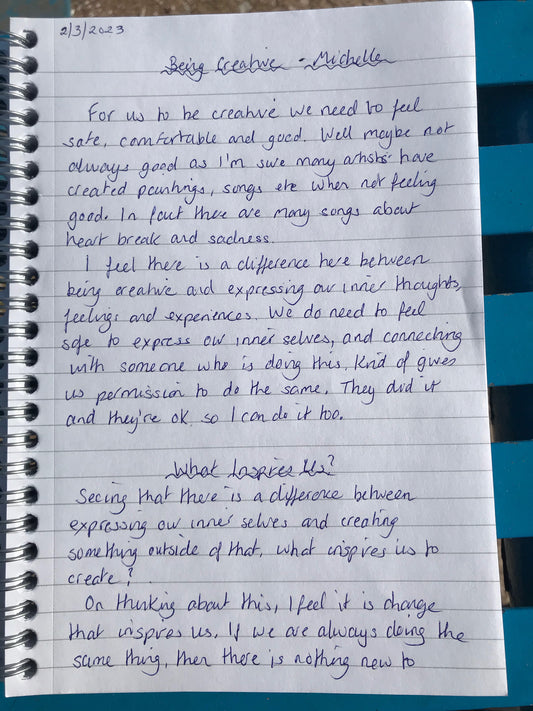 2/3/2023
Being Creative - Michelle
For us to be creative we need to feel
safe, comfortable and good. Well maybe not
always good as I'm sure many artists have
created paintings, songs etc when not feeling
good. In fact there are many songs about
heart break and sadness.
I feel there is a difference here between
being creative and expressing our inner thoughts,
feelings and experiences. We do need to feel
safe to express our inner selves, and connecting
with someone who is doing this, kind of gives
us permission to do the same. They did it
and they're ok so I can do it too.
What Inspires Us?
Seeing that there is a difference between
expressing our inner selves and creating
something outside of that, what inspires us to
create?
On thinking about this, I feel it is change
that inspires us. If we are always doing the
same thing, then there is nothing new to